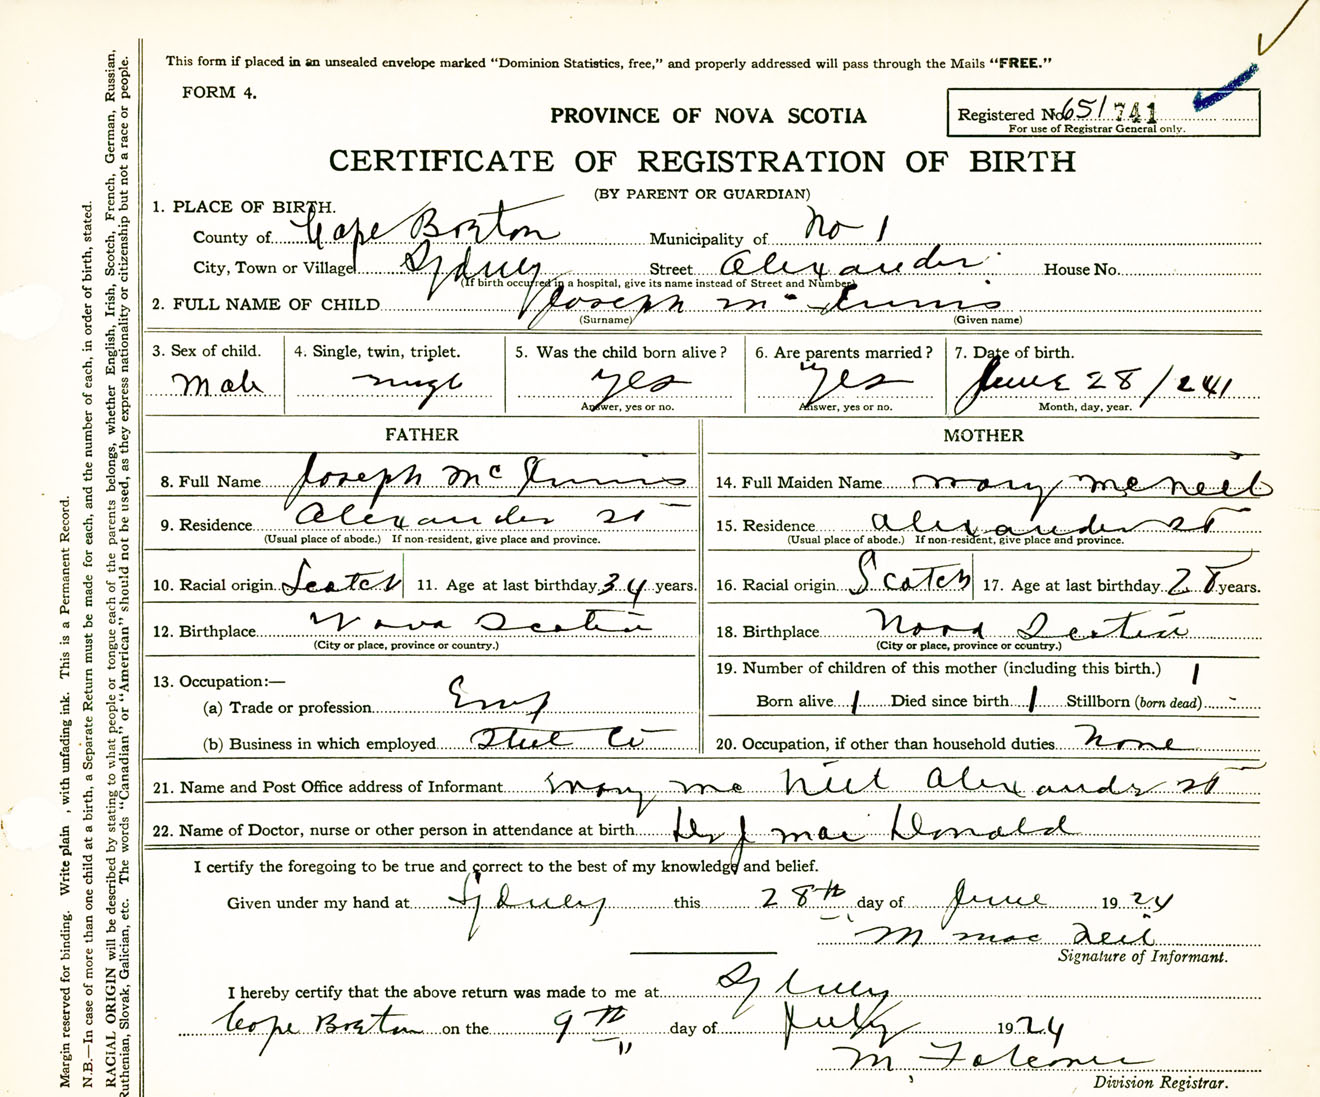 This form if placed in an unsealed envelope marked “Dominion Statistics, free,” and properly addressed will pass through the Mails “FREE.”
FORM 4.
PROVINCE OF NOVA SCOTIA
Registered No. 651 741
For use of Registrar General only.
CERTIFICATE OF REGISTRATION OF BIRTH
(BY PARENT OR GUARDIAN)
1. PLACE OF BIRTH.
County of Cape Breton Municipality of No 1
City, Town or Village Sydney Street Alexander House No.
(If birth occurred in a hospital, give its name instead of Street and Number)
2. FULL NAME OF CHILD Joseph Mc Innis
(Surname) (Given name)
3. Sex of child. 4. Single, twin, triplet. 5. Was the child born alive? 6. Are parents married? 7. Date of birth.
Male single yes yes June 28 / 24
Answer, yes or no. Answer, yes or no. Month, day, year.
FATHER MOTHER
8. Full Name Joseph Mc Innis 14. Full Maiden Name Mary McNeil
9. Residence Alexander St 15. Residence Alexander St
(Usual place of abode.) If non-resident, give place and province. (Usual place of abode.) If non-resident, give place and province.
10. Racial origin Scotch 11. Age at last birthday 34 years. 16. Racial origin Scotch 17. Age at last birthday 28 years.
12. Birthplace Nova Scotia 18. Birthplace Nova Scotia
(City or place, province or country.) (City or place, province or country.)
19. Number of children of this mother (including this birth.) 1
13. Occupation:—
(a) Trade or profession Emp Born alive 1 Died since birth 1 Stillborn (born dead) -
(b) Business in which employed Steel Co 20. Occupation, if other than household duties None
21. Name and Post Office address of Informant Mary Mc Neil Alexander St
22. Name of Doctor, nurse or other person in attendance at birth Dr J Mac Donald
I certify the foregoing to be true and correct to the best of my knowledge and belief.
Given under my hand at Sydney this 28th day of June 1924
M Mac Neil
Signature of Informant.
I hereby certify that the above return was made to me at Sydney
Cape Breton on the 9th day of July 1924
M Falconer
Division Registrar.
Margin reserved for binding. Write plain , with unfading ink. This is a Permanent Record.
N.B.—In case of more than one child at a birth, a Separate Return must be made for each, and the number of each, in order of birth, stated.
RACIAL ORIGIN will be described by stating to what people or tongue each of the parents belongs, whether English, Irish, Scotch, French, German, Russian,
Ruthenian, Slovak, Galician, etc. The words “Canadian” or “American” should not be used, as they express nationality or citizenship but not a race or people.